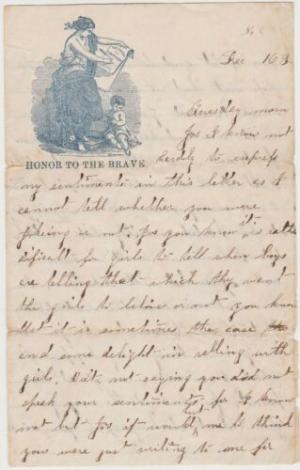 Dec 16
Tuesday morn
for I know not
hardly to express
my sentiments in this letter as I
cannot tell whether you were
joking or not. for you know it is rather
dificult for girls to tell when boys
are telling that which they want
the girls to believe or not you know
that it is sometimes the case
and some delight in selling with
girls. But not saying you did not
speak your sentiments for I know
not but for if would me to think
you were just writing to me for
HONOR TO THE BRAVE